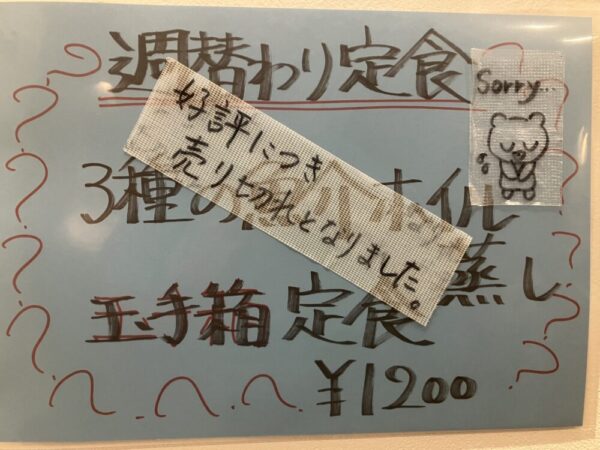 週替わり定食
Sorry...
好評につき
売り切れとなりました。
3種の
ホイル
蒸し
玉手箱定食
¥1200